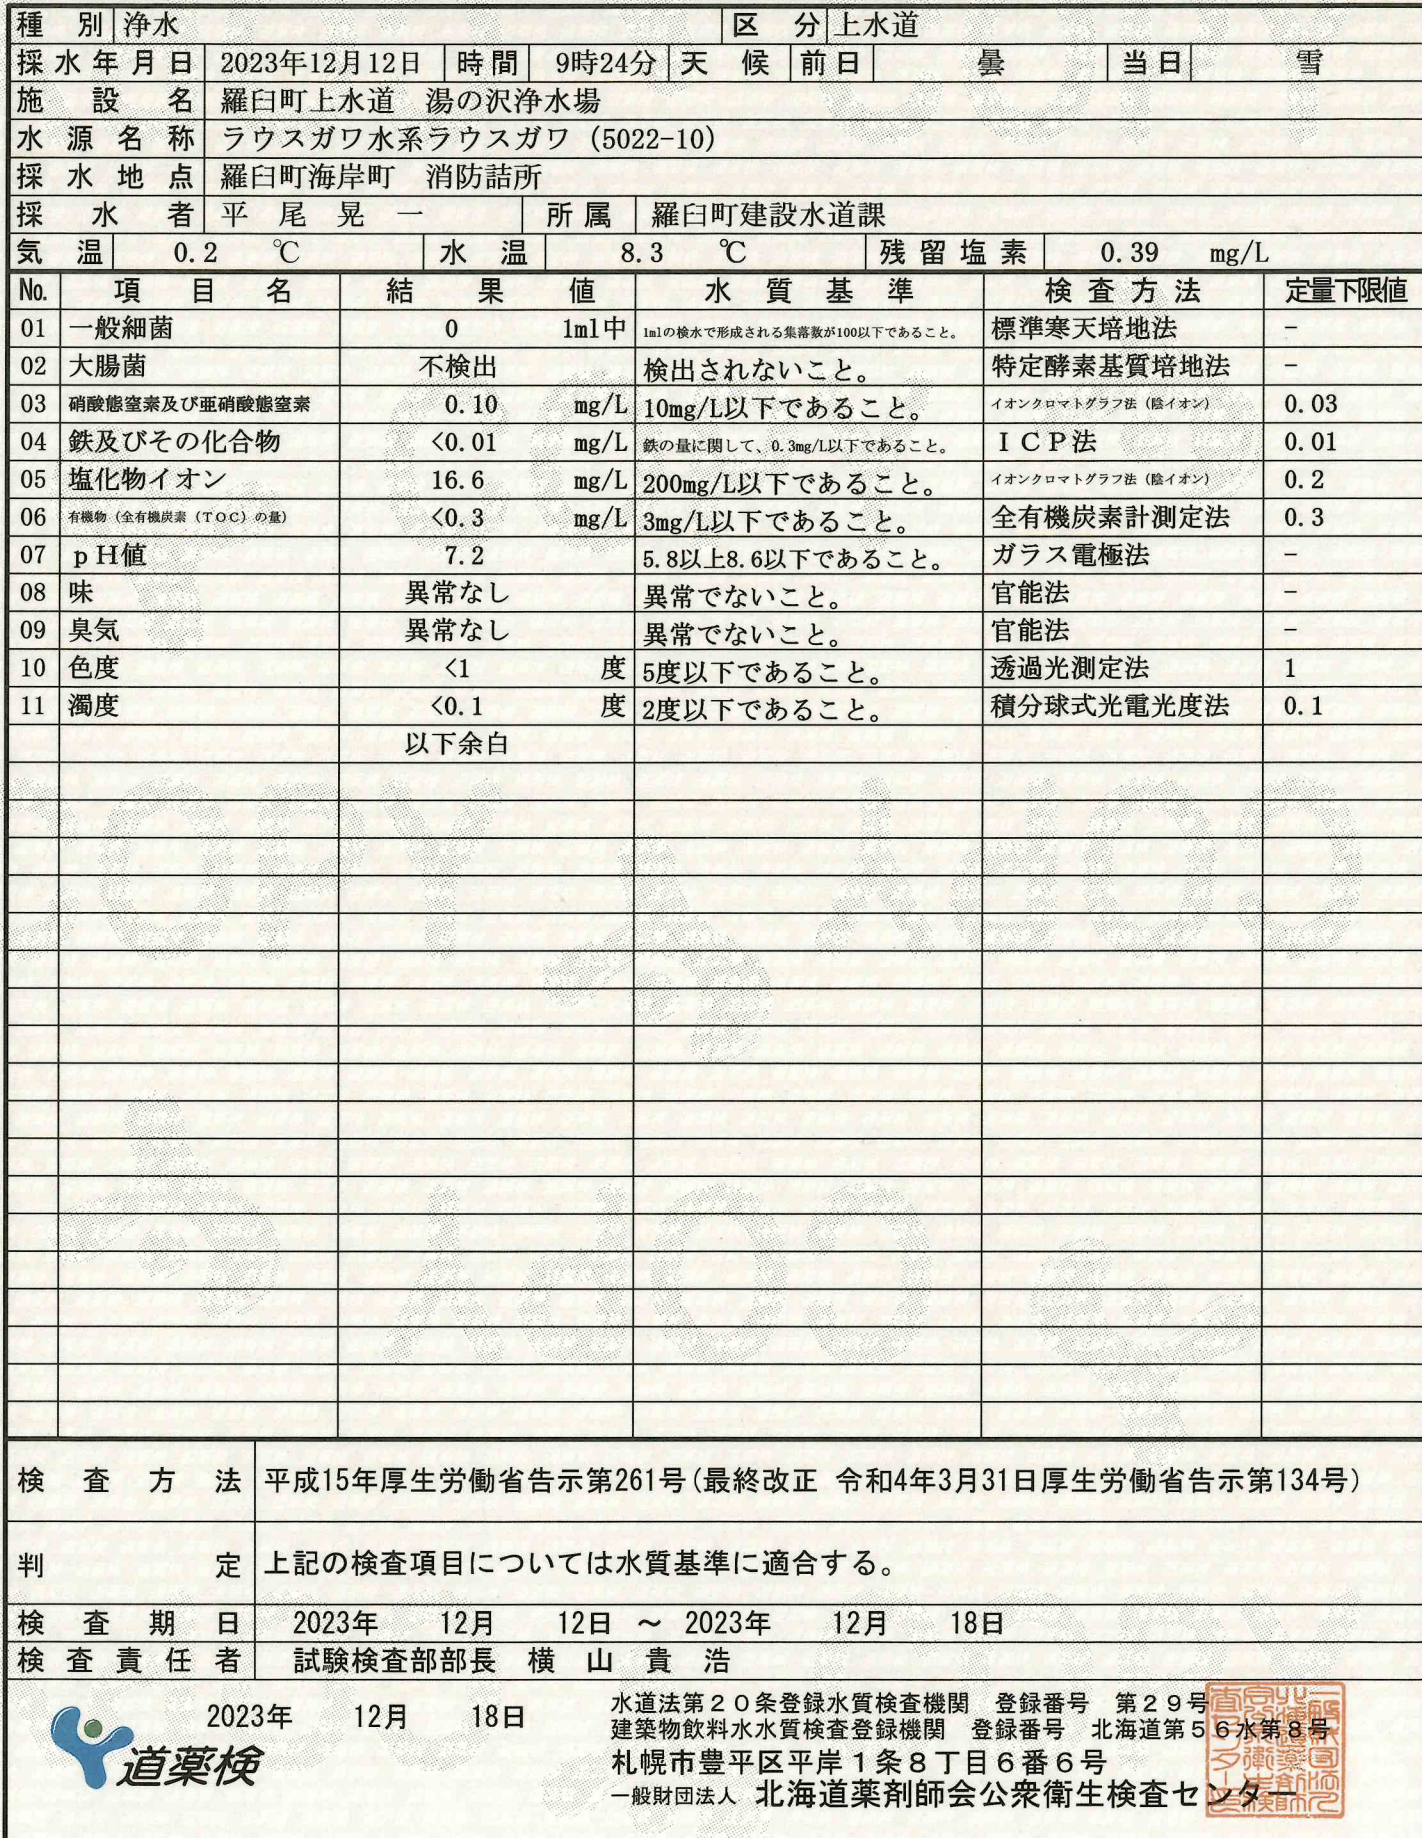 種 別 浄水 区 分 上水道
採水年月日 2023年12月12日 時間 9時24分 天 候 前日 曇 当日 雪
施 設 名 羅臼町上水道 湯の沢浄水場
水 源 名 称 ラウスガワ水系ラウスガワ (5022-10)
採 水 地 点 羅臼町海岸町 消防詰所
採 水 者 平 尾 晃 一 所属 羅臼町建設水道課
気 温 0.2 ℃ 水 温 8.3 ℃ 残留塩素 0.39 mg/L
No. 項 目 名 結 果 値 水 質 基 準 検査方法 定量下限値
01 一般細菌 0 1ml中 1mlの検水で形成される集落数が100以下であること。 標準寒天培地法 －
02 大腸菌 不検出 検出されないこと。 特定酵素基質培地法 －
03 硝酸態窒素及び亜硝酸態窒素 0.10 mg/L 10mg/L以下であること。 イオンクロマトグラフ法（陰イオン） 0.03
04 鉄及びその化合物 <0.01 mg/L 鉄の量に関して、0.3mg/L以下であること。 ＩＣＰ法 0.01
05 塩化物イオン 16.6 mg/L 200mg/L以下であること。 イオンクロマトグラフ法（陰イオン） 0.2
06 有機物（全有機炭素（ＴＯＣ）の量） <0.3 mg/L 3mg/L以下であること。 全有機炭素計測定法 0.3
07 ｐＨ値 7.2 5.8以上8.6以下であること。 ガラス電極法 －
08 味 異常なし 異常でないこと。 官能法 －
09 臭気 異常なし 異常でないこと。 官能法 －
10 色度 <1 度 5度以下であること。 透過光測定法 1
11 濁度 <0.1 度 2度以下であること。 積分球式光電光度法 0.1
以下余白
検 査 方 法 平成15年厚生労働省告示第261号(最終改正 令和4年3月31日厚生労働省告示第134号)
判 定 上記の検査項目については水質基準に適合する。
検 査 期 日 2023年 12月 12日 ～ 2023年 12月 18日
検 査 責 任 者 試験検査部部長 横 山 貴 浩
2023年 12月 18日
水道法第２０条登録水質検査機関 登録番号 第２９号
建築物飲料水水質検査登録機関 登録番号 北海道第５６水第８号
道薬検
札幌市豊平区平岸１条８丁目６番６号
一般財団法人 北海道薬剤師会公衆衛生検査センター